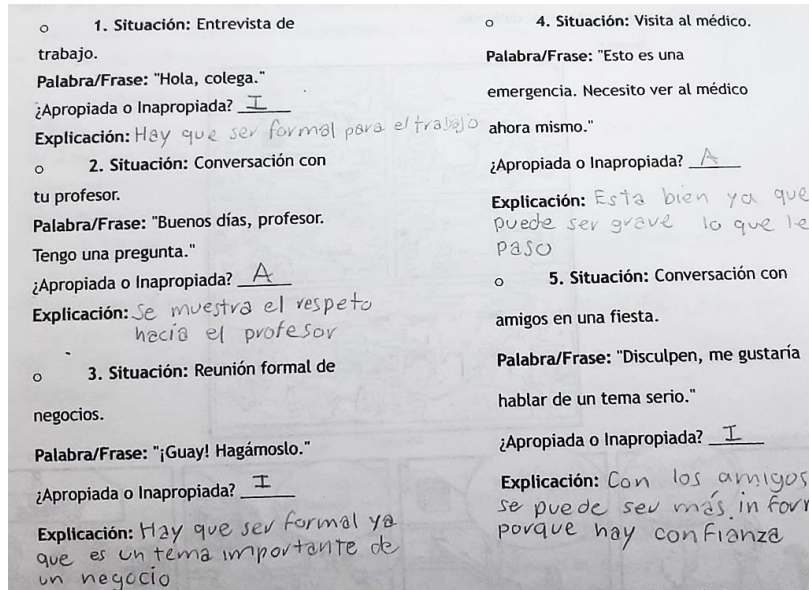 1. Situación: Entrevista de
trabajo.
Palabra/Frase: "Hola, colega."
¿Apropiada o Inapropiada? I
Explicación: Hay que ser formal para el trabajo
2. Situación: Conversación con
tu profesor.
Palabra/Frase: "Buenos días, profesor.
Tengo una pregunta."
¿Apropiada o Inapropiada? A
Explicación: Se muestra el respeto
hacia el profesor
3. Situación: Reunión formal de
negocios.
Palabra/Frase: "¡Guay! Hagámoslo."
¿Apropiada o Inapropiada? I
Explicación: Hay que ser formal ya
que es un tema importante de
un negocio
4. Situación: Visita al médico.
Palabra/Frase: "Esto es una
emergencia. Necesito ver al médico
ahora mismo."
¿Apropiada o Inapropiada? A
Explicación: Esta bien ya que
puede ser grave lo que le
paso
5. Situación: Conversación con
amigos en una fiesta.
Palabra/Frase: "Disculpen, me gustaría
hablar de un tema serio."
¿Apropiada o Inapropiada? I
Explicación: Con los amigos
se puede ser más in for
porque hay confianza